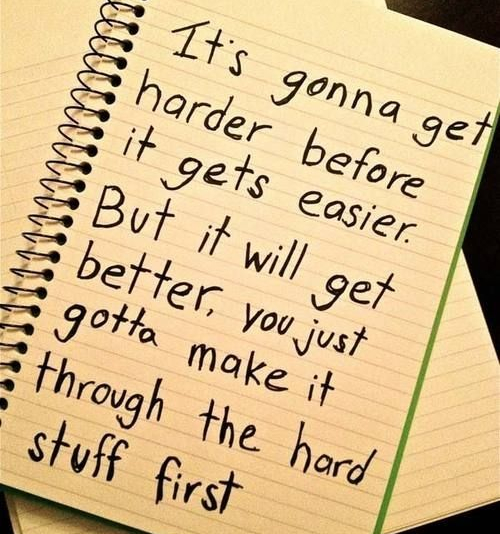 It's gonna get
harder before
it gets easier.
But it will get
better, you just
gotta make it
through the hard
stuff first